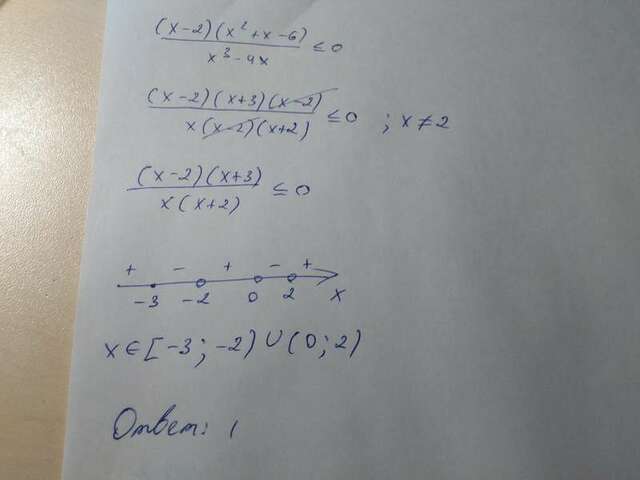 (x-2)(x²+x-6)/(x³-4x) ≤ 0
(x-2)(x+3)(x-2)/(x(x-2)(x+2)) ≤ 0 ; x≠2
(x-2)(x+3)/(x(x+2)) ≤ 0
+ - + - +
-3 -2 0 2 x
x∈[-3; -2)∪(0; 2)
Ответ: (